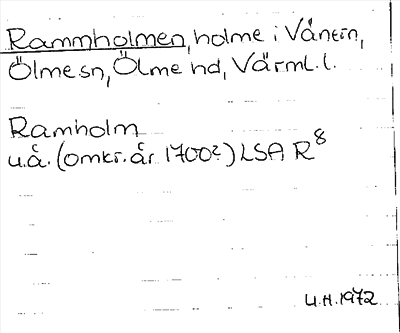 Rammholmen, holme i Vänern,
Ölme sn, Ölme hd, Värml. l.
Ramholm
u.å. (omkr. år 1700?) LSA R 8
U.H. 1972